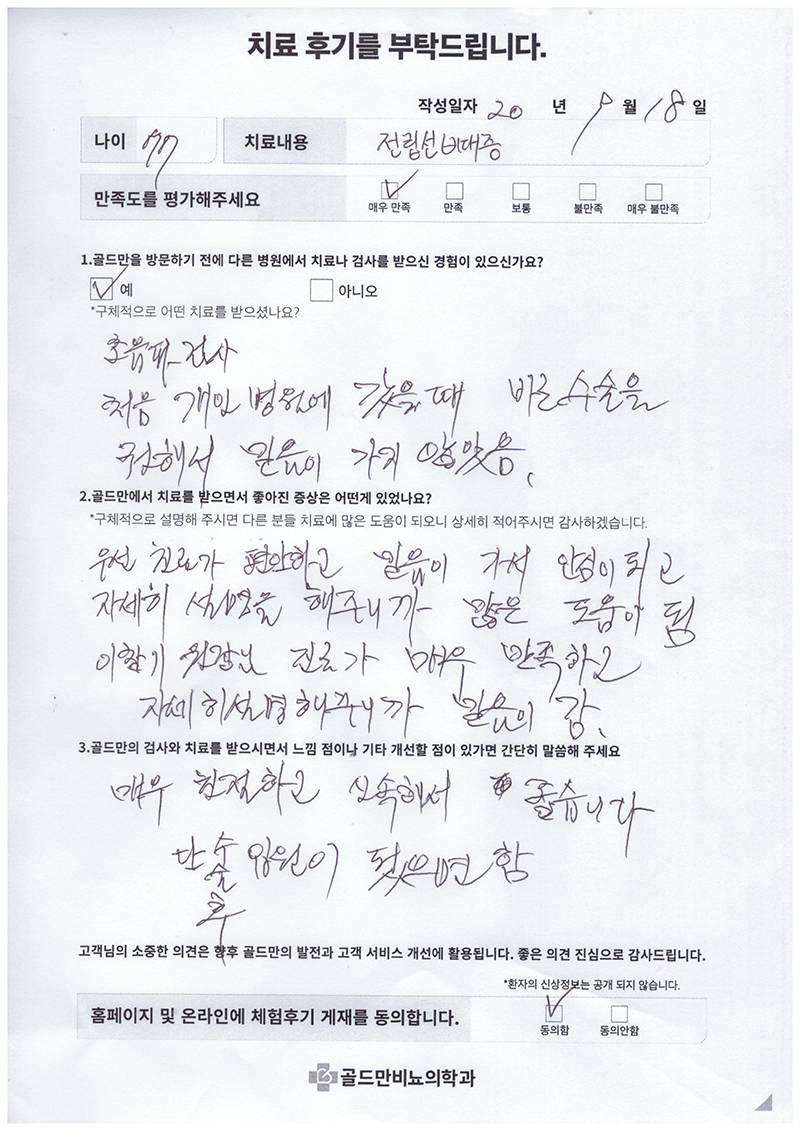 치료 후기를 부탁드립니다.
작성일자 20 년 9 월 18 일
나이 77 치료내용 전립선비대증
만족도를 평가해주세요 매우 만족 만족 보통 불만족 매우 불만족
1.골드만을 방문하기 전에 다른 병원에서 치료나 검사를 받으신 경험이 있으신가요?
예 아니오
*구체적으로 어떤 치료를 받으셨나요?
초음파 검사
처음 개인 병원에 갔을때 바로 수술을
권해서 믿음이 가지 않았음.
2.골드만에서 치료를 받으면서 좋아진 증상은 어떤게 있었나요?
*구체적으로 설명해 주시면 다른 분들 치료에 많은 도움이 되오니 상세히 적어주시면 감사하겠습니다.
우선 진료가 편안하고 믿음이 가서 안심이 되고
자세히 설명을 해주니까 많은 도움이 됨
이창기 원장님 진료가 매우 만족하고
자세히 설명해주니까 믿음이 감.
3.골드만의 검사와 치료를 받으시면서 느낌 점이나 기타 개선할 점이 있가면 간단히 말씀해 주세요
매우 친절하고 신속해서 좋습니다
단 수술후 입원이 됬으면 함
고객님의 소중한 의견은 향후 골드만의 발전과 고객 서비스 개선에 활용됩니다. 좋은 의견 진심으로 감사드립니다.
*환자의 신상정보는 공개 되지 않습니다.
홈페이지 및 온라인에 체험후기 게재를 동의합니다. 동의함 동의안함
골드만비뇨의학과